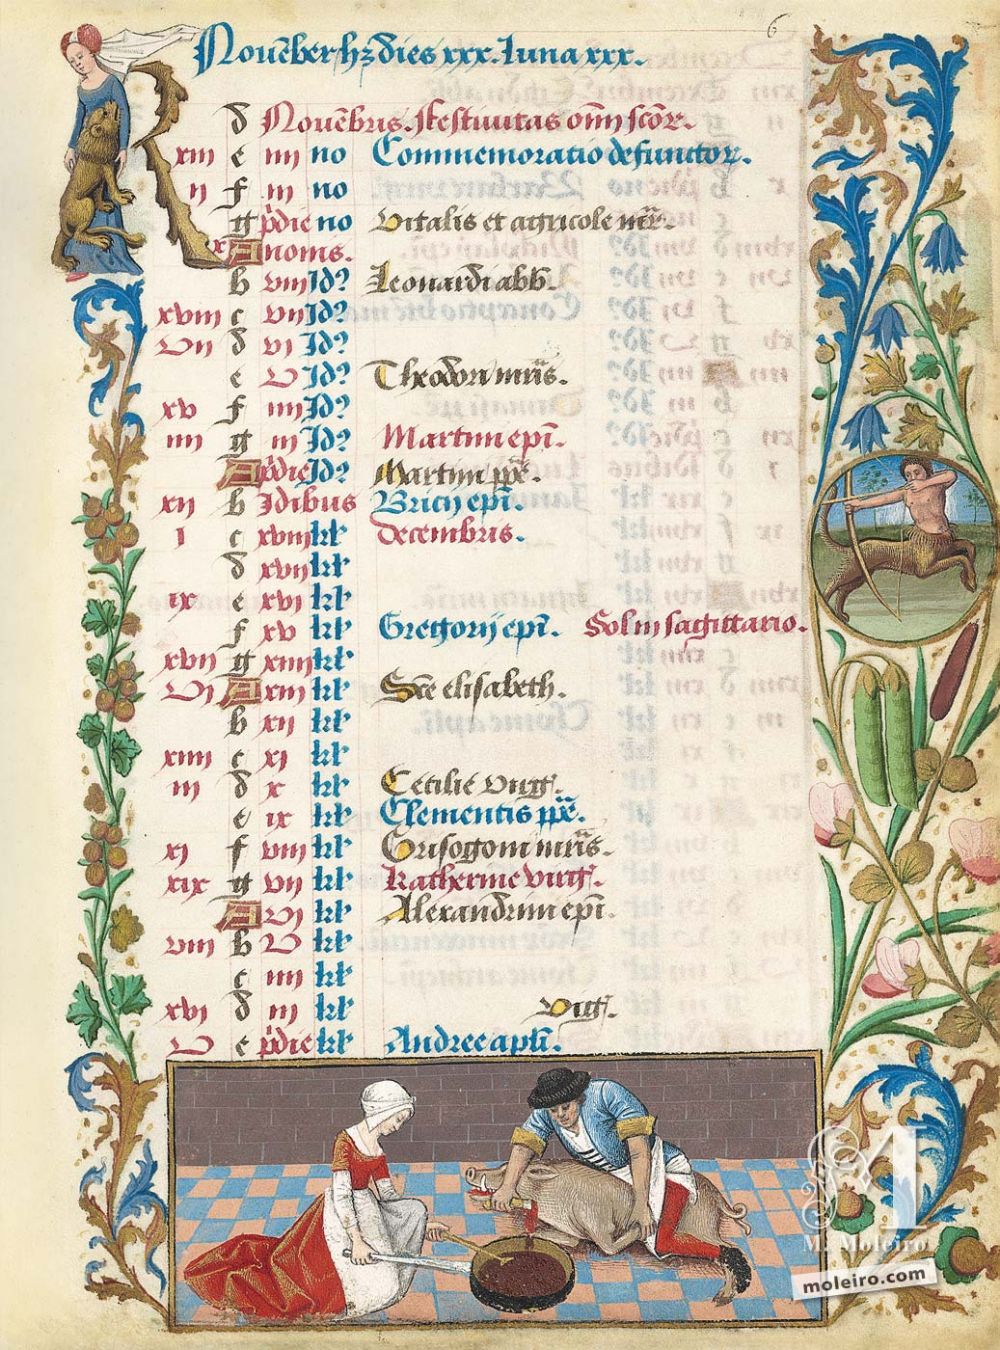 6
Nouēber hʒ dies xxx. luna xxx.
KL d Nouēbris. Festiuitas oīm scōr.
xiii e iiii no Commemoratio defunctor.
ii f iii no
g pͥdie no Vitalis et agricole mr̄.
x A nonis.
b viii Id? Leonardi abb.
xviii c vii Id?
vii d vi Id?
e v Id? Theodori mr̄is.
xv f iiii Id?
iiii g iii Id? Martini epī.
A pͥdie Id? Martini ppē.
xii b Idibus Bricij epī.
i c xviii kl' decembris.
d xvii kl'
ix e xvi kl'
f xv kl' Gregorij epī. Sol in sagittario.
xvii g xiiii kl'
vi A xiii kl' Scē elisabeth.
b xii kl'
xiiii c xi kl'
iii d x kl' Cecilie virḡ.
e ix kl' Clementis ppē.
xi f viii kl' Grisogoni mr̄is.
xix g vii kl' Katherine virḡ.
A vi kl' Alexandrini epī.
viii b v kl'
c iiii kl'
xvi d iii kl' Viḡ.
v e pͥdie kl' Andree aplī.
M
M. Moleiro
moleiro.com